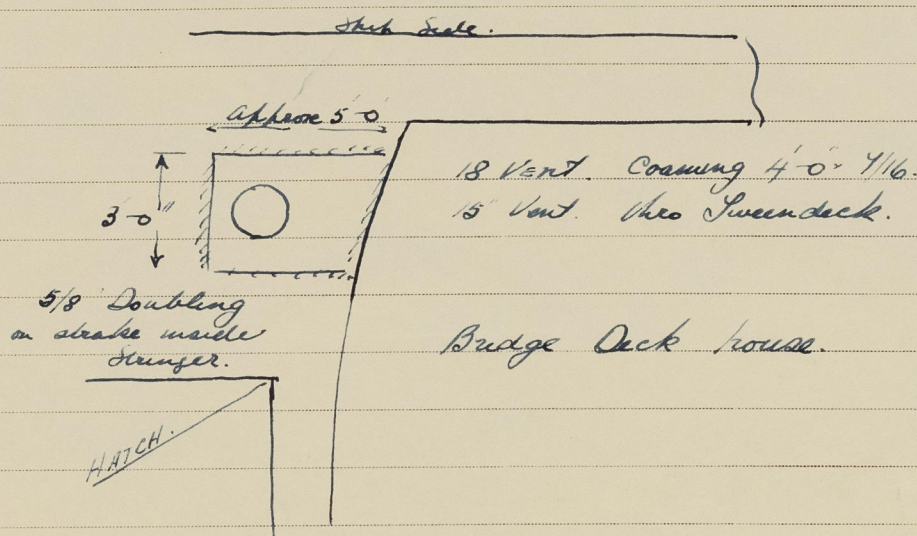 Ship Side.
Approx 5'-0"
18" Vent. Coaming 4'-0" × 7/16"
15" Vent. thro Tweendeck.
3'-0"
5/8" Doubling
on strake inside
Stringer.
Bridge Deck house.
HATCH.